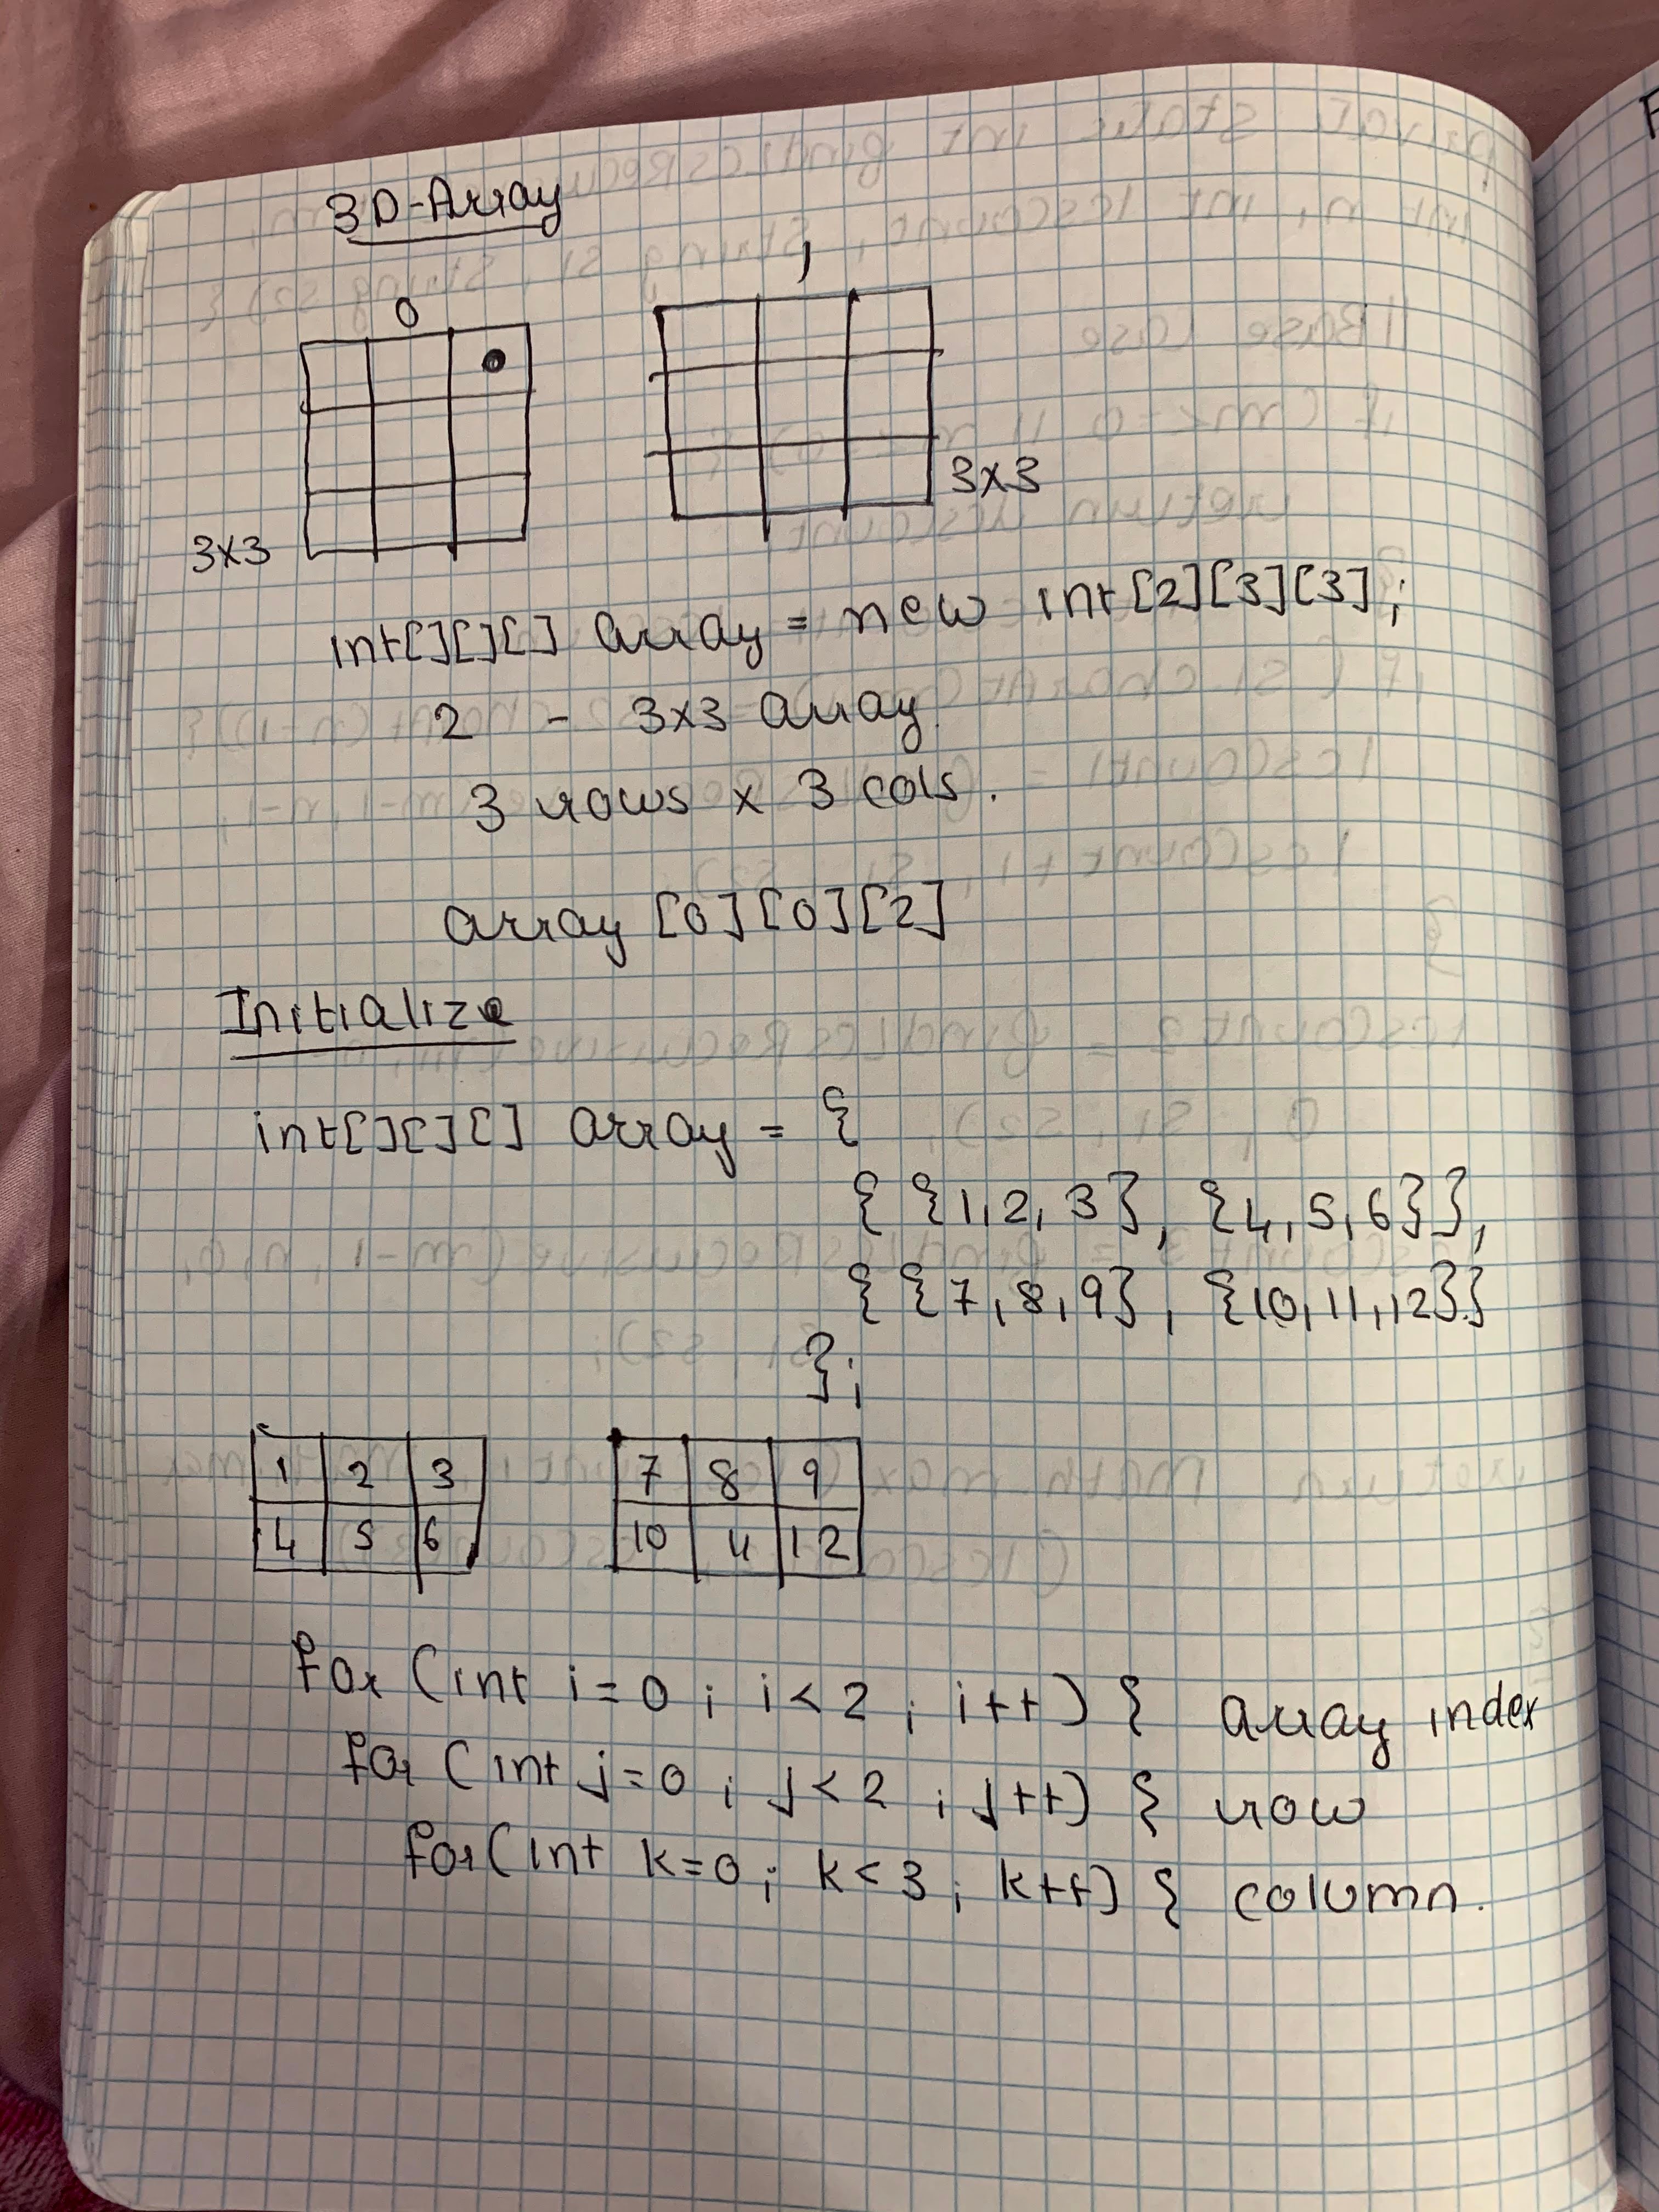 3D-Array
0
1
3x3
3x3
int[][][] array = new int[2][3][3];
2 - 3x3 array
3 rows x 3 cols.
array [0][0][2]
Initialize
int[][][] array = {
{ {1,2,3}, {4,5,6}},
{ {7,8,9}, {10,11,12}}
};
1 2 3 7 8 9
4 5 6 10 11 12
for (int i=0; i<2; i++) { array index
for (int j=0; j<2; j++) { row
for(int k=0; k<3; k++) { column.